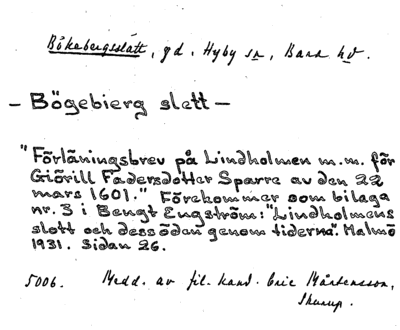 Bökebergsslätt, gd. Hyby sn, Bara hd.
- Bögebierg slett -
"Förläningsbrev på Lindholmen m.m. för
Giörill Fadersdotter Sparre av den 22
mars 1601." Förekommer som bilaga
nr. 3 i Bengt Engström: "Lindholmens
slott och dess ödan genom tiderna". Malmö
1931. Sidan 26.
5006. Medd. av fil. kand. Eric Mårtensson,
Skurup.